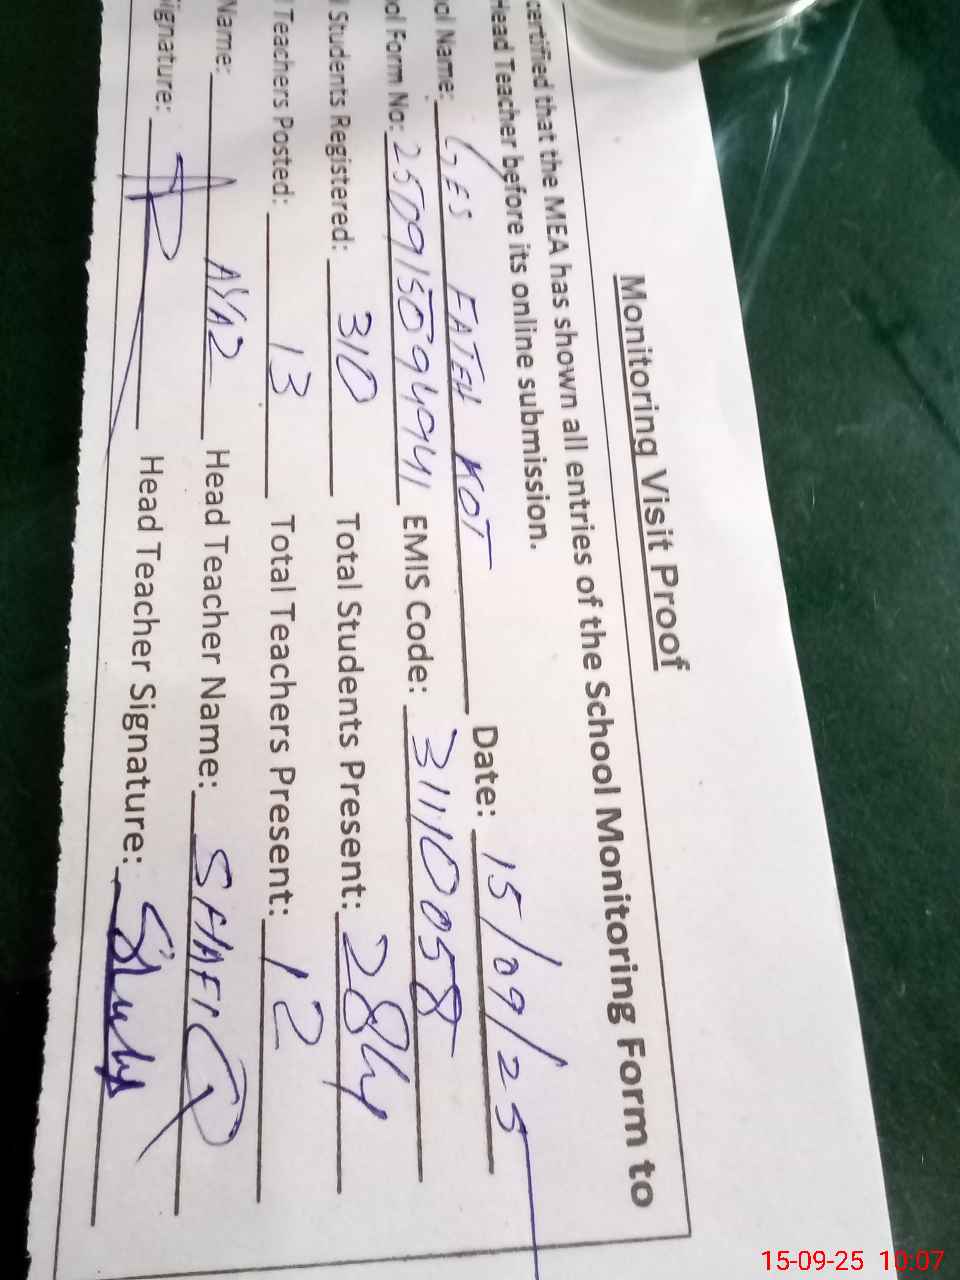 Monitoring Visit Proof
certified that the MEA has shown all entries of the School Monitoring Form to
Head Teacher before its online submission.
ol Name: GES FATEH KOT Date: 15/09/25
ol Form No: EMIS Code: 31110058
Students Registered: 310 Total Students Present: 284
Teachers Posted: 13 Total Teachers Present: 12
Name: AYAZ Head Teacher Name: SHAFIQ
ignature: Head Teacher Signature:
15-09-25 10:07